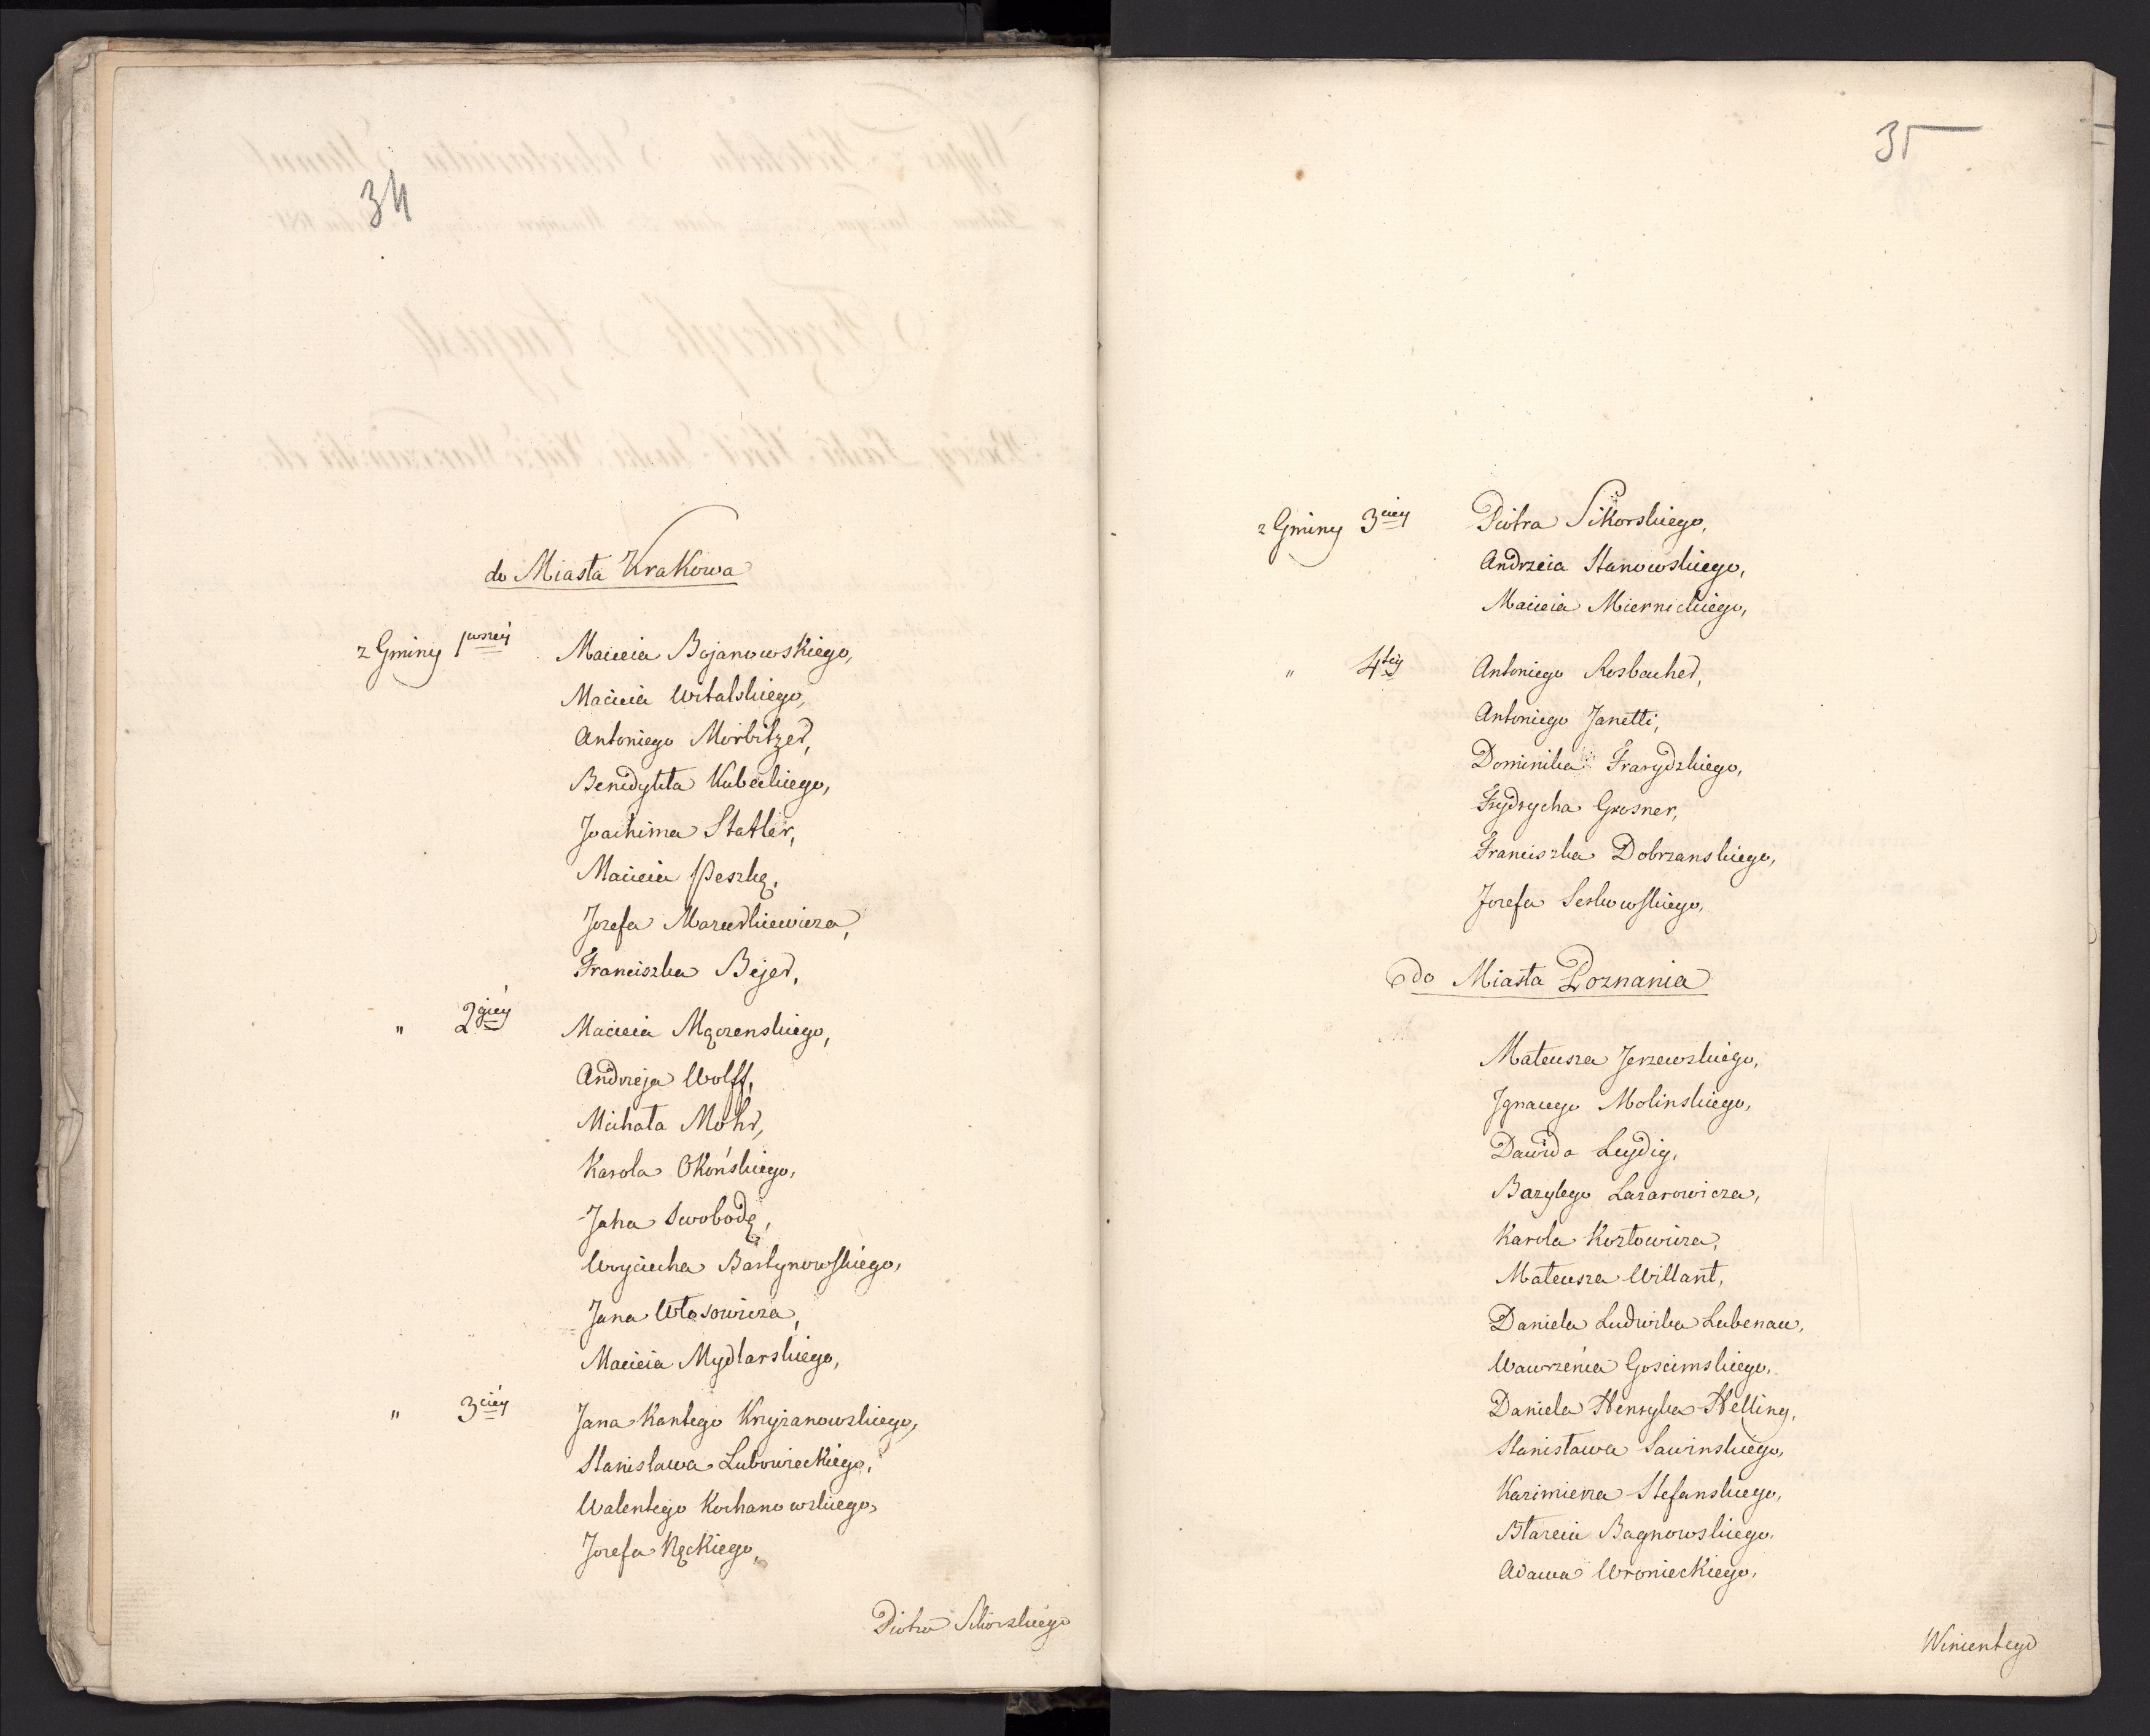 34
do Miasta Krakowa
z Gminy 1wszéy Macieia Bojanowskiego,
Macieia Witalskiego,
Antoniego Morbitzer,
Benedykta Kubeckiego,
Joachima Statler,
Macieia Peszkę,
Jozefa
Franciszka Bejer,
" 2giéy Macieia Mączenskiego,
Andrzeja Wolff,
Michała Mohr,
Karola Okońskiego,
Jana Swobodę,
Woyciecha Bartynowskiego,
Jana Włosowicza,
Macieia Mydlarskiego,
" 3ciéy Jana Kantego Krzyżanowskiego,
Stanislawa Lubowieckiego,
Walentego Kochanowskiego,
Jozefa Kęckiego,
Piotra Sikorskiego
35
z Gminy 3ciey Piotra Sikorskiego,
Andrzeia Stanowskiego,
Macieia Miernickiego,
" 4téy Antoniego Rosbacher,
Antoniego Janetti,
Dominika
Frydrycha Grosner,
Franciszka Dobrzanskiego,
Jozefa
do Miasta Poznania
Mateusza Jerzewskiego,
Ignacego Molinskiego,
Dawida Leydig,
Bazylego Lazarowicza,
Karola Kozłowicza,
Mateusza Willant,
Daniela Ludwika Lubenau,
Wawrzeńca Goscimskiego,
Daniela Henryka Helling,
Stanisława Sawinskiego,
Kazimierza Stefanskiego,
Błażeia Bagnowskiego,
Adama Wronieckiego,
Winientego